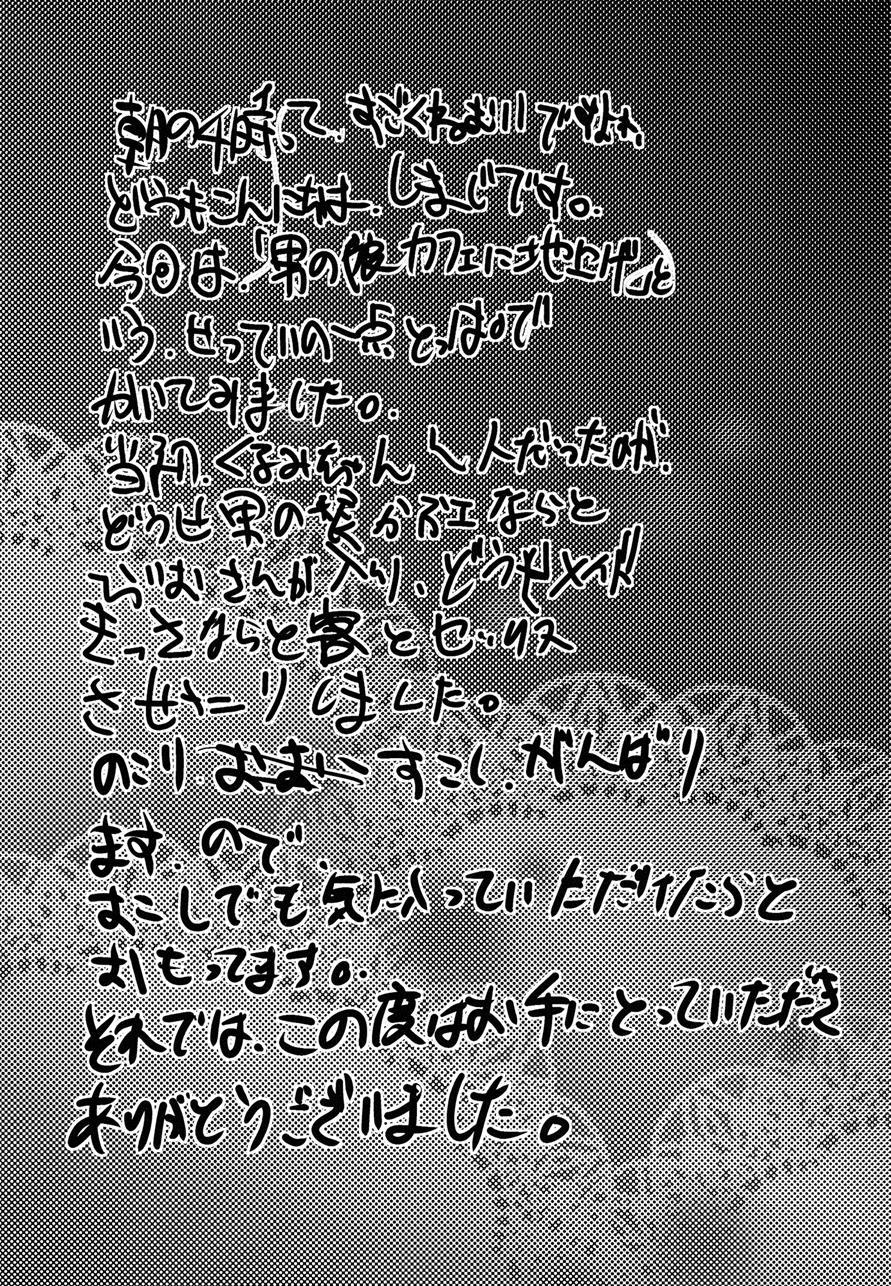 朝の4時って、すごくねむいですよね、
どうもこんにちは、しまじです。
今回は、「男の娘カフェに地上げ」と
いう、せっていの一点とっぱで
かいてみました。
当初、くるみちゃん1人だったのが、
どうせ男の娘かふェならと
おさんが入り、どうせメイド
きっさならと客とセックス
させたりしました。
のこり すこし、がんばり
ます、ので、
すこしでも気に入っていただイたらと
おもってます。
それでは、この度はお手にとっていただき
ありがとうございました。